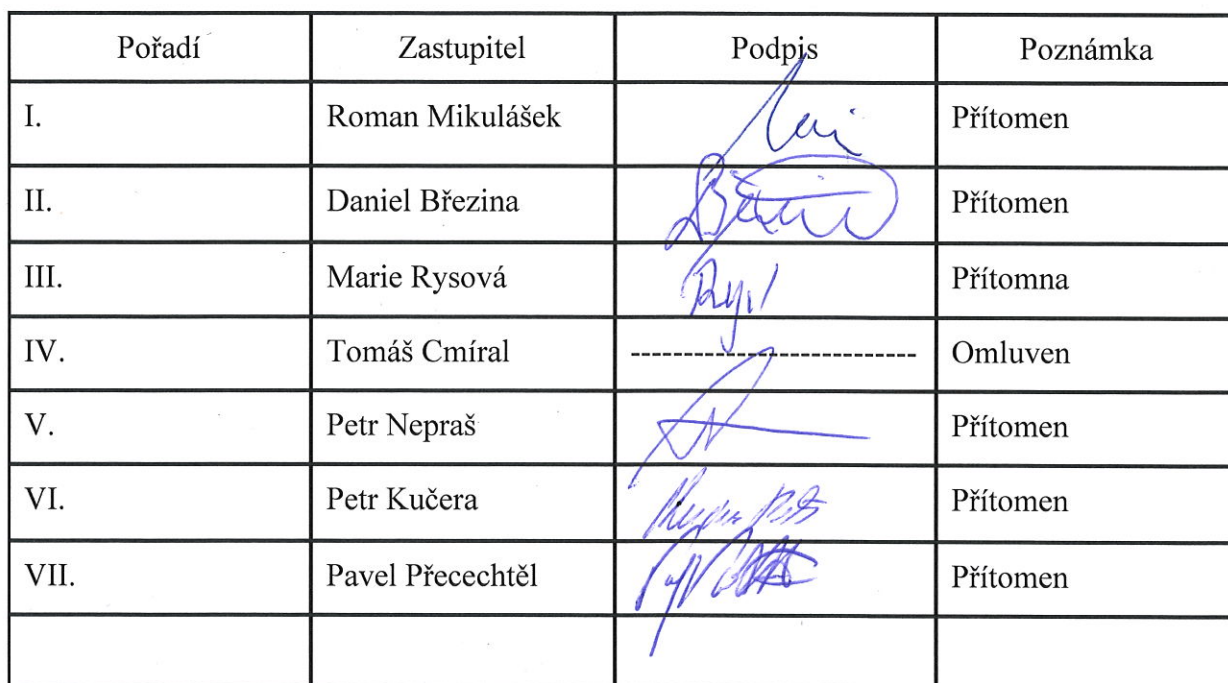 Pořadí Zastupitel Podpis Poznámka
I. Roman Mikulášek Přítomen
II. Daniel Březina Přítomen
III. Marie Rysová Přítomna
IV. Tomáš Cmíral --------------------------- Omluven
V. Petr Nepraš Přítomen
VI. Petr Kučera Přítomen
VII. Pavel Přecechtěl Přítomen